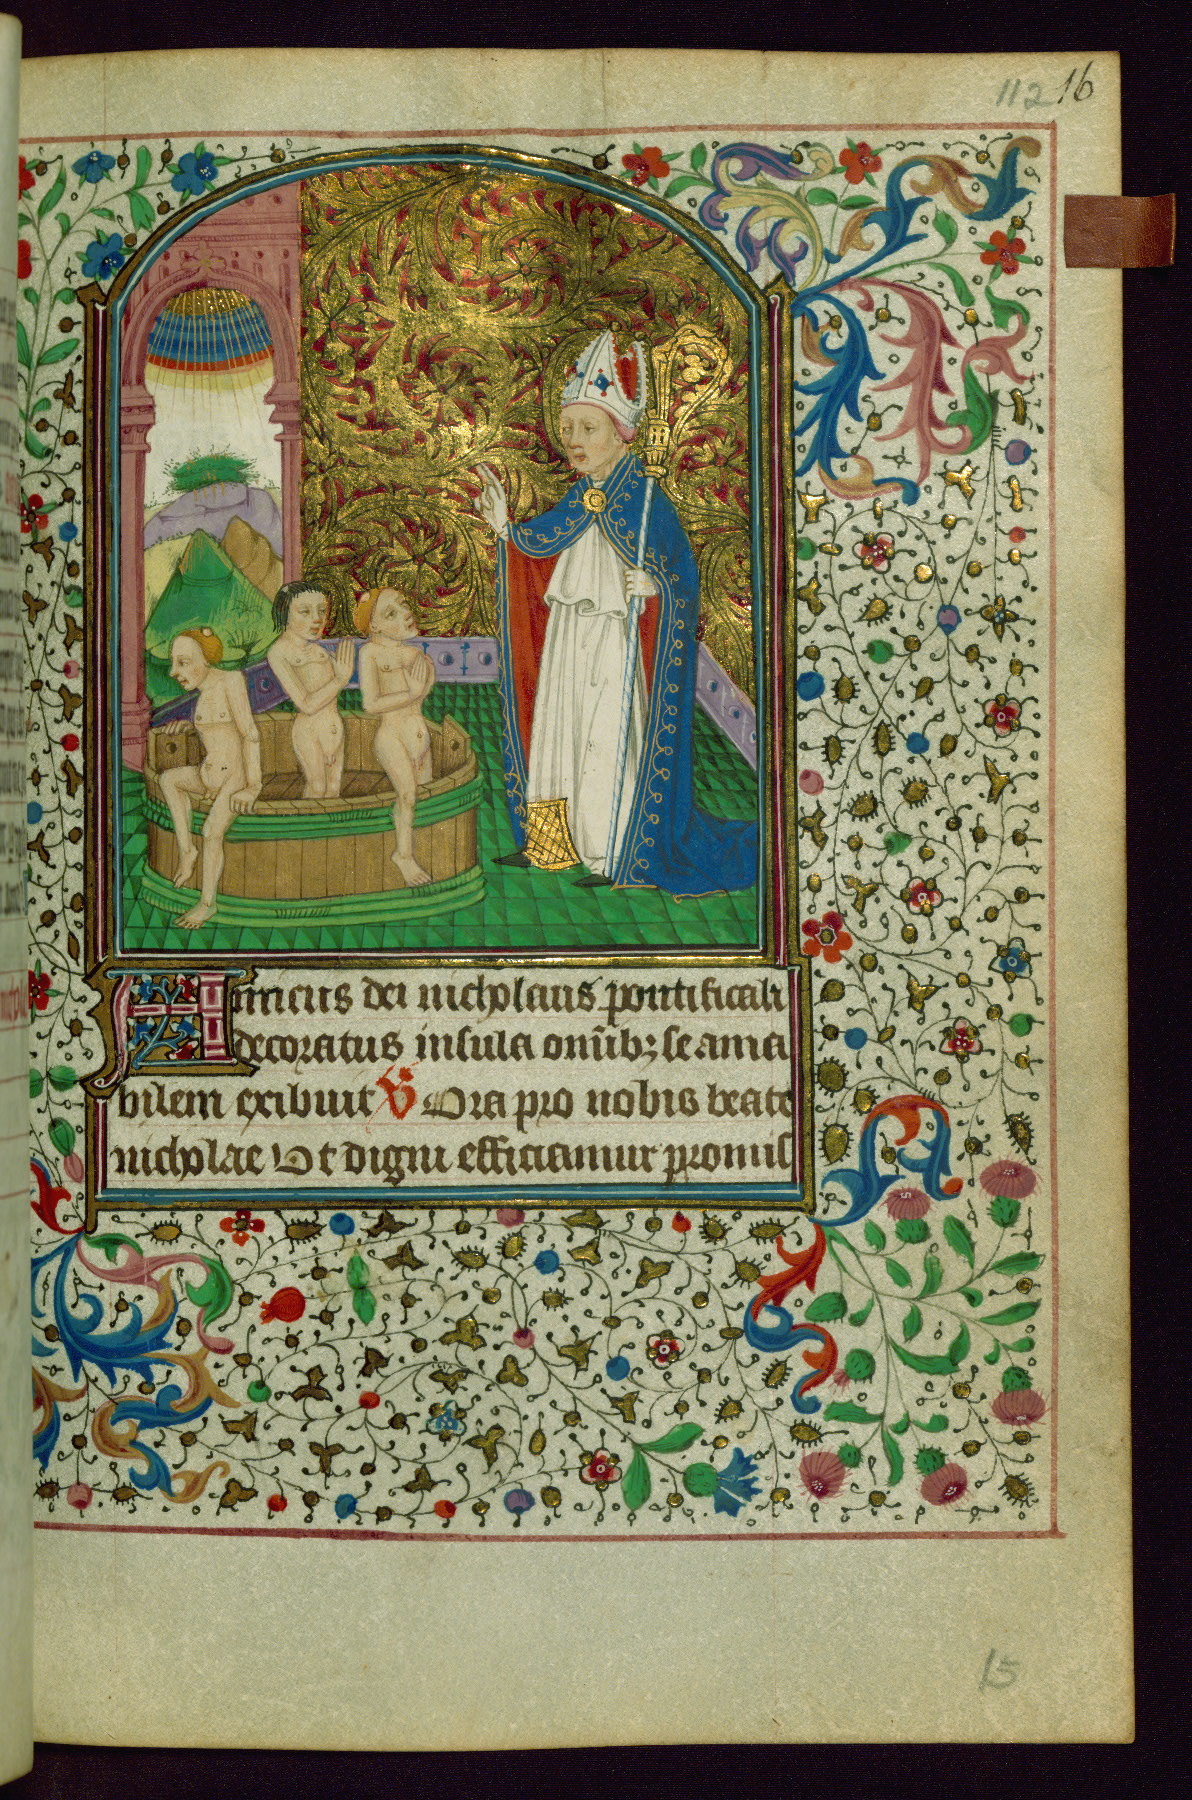 112 16
Amicus dei nicholaus pontificali
decoratus insula om̄ib; se ama
bilem exibuit V Ora pro nobis beate
nicholae Ut digni efficiamur promis
15